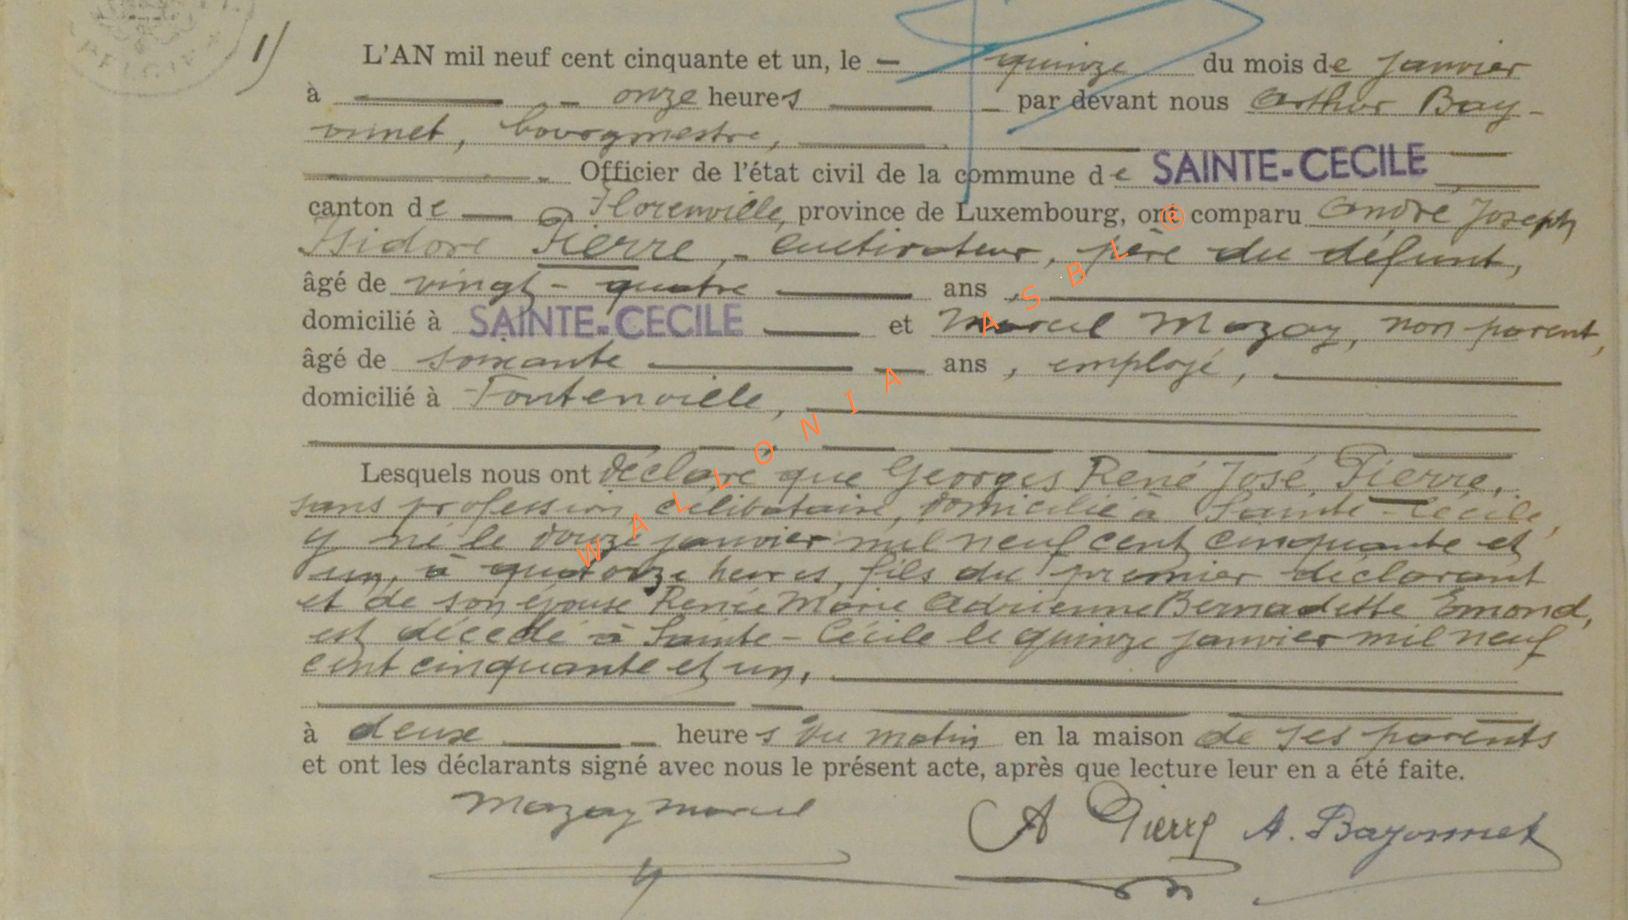 1)
L'AN mil neuf cent cinquante et un, le quinze du mois de janvier
à onze heures par devant nous Arthur Bay-
onnet, bourgmestre,
Officier de l'état civil de la commune de SAINTE-CECILE
canton de Florenville, province de Luxembourg, ont comparu André Joseph
Isidore Pierre, cultivateur, père du défunt,
âgé de vingt-quatre ans,
domicilié à SAINTE-CECILE et Marcel Mazay, non parent,
âgé de soixante ans, employé,
domicilié à Fontenoille,
Lesquels nous ont déclaré que Georges René José Pierre,
sans profession, célibataire, domicilié à Sainte-Cécile,
y né le douze janvier mil neuf cent cinquante et
un, à quatorze heures, fils du premier déclarant
et de son épouse Renée Marie Adrienne Bernadette Emond,
est décédé à Sainte-Cécile le quinze janvier mil neuf
cent cinquante et un,
à deux heures du matin en la maison de ses parents
et ont les déclarants signé avec nous le présent acte, après que lecture leur en a été faite.
Mazay Marcel A Pierre A. Bayonnet
WALLONIA ASBL ®